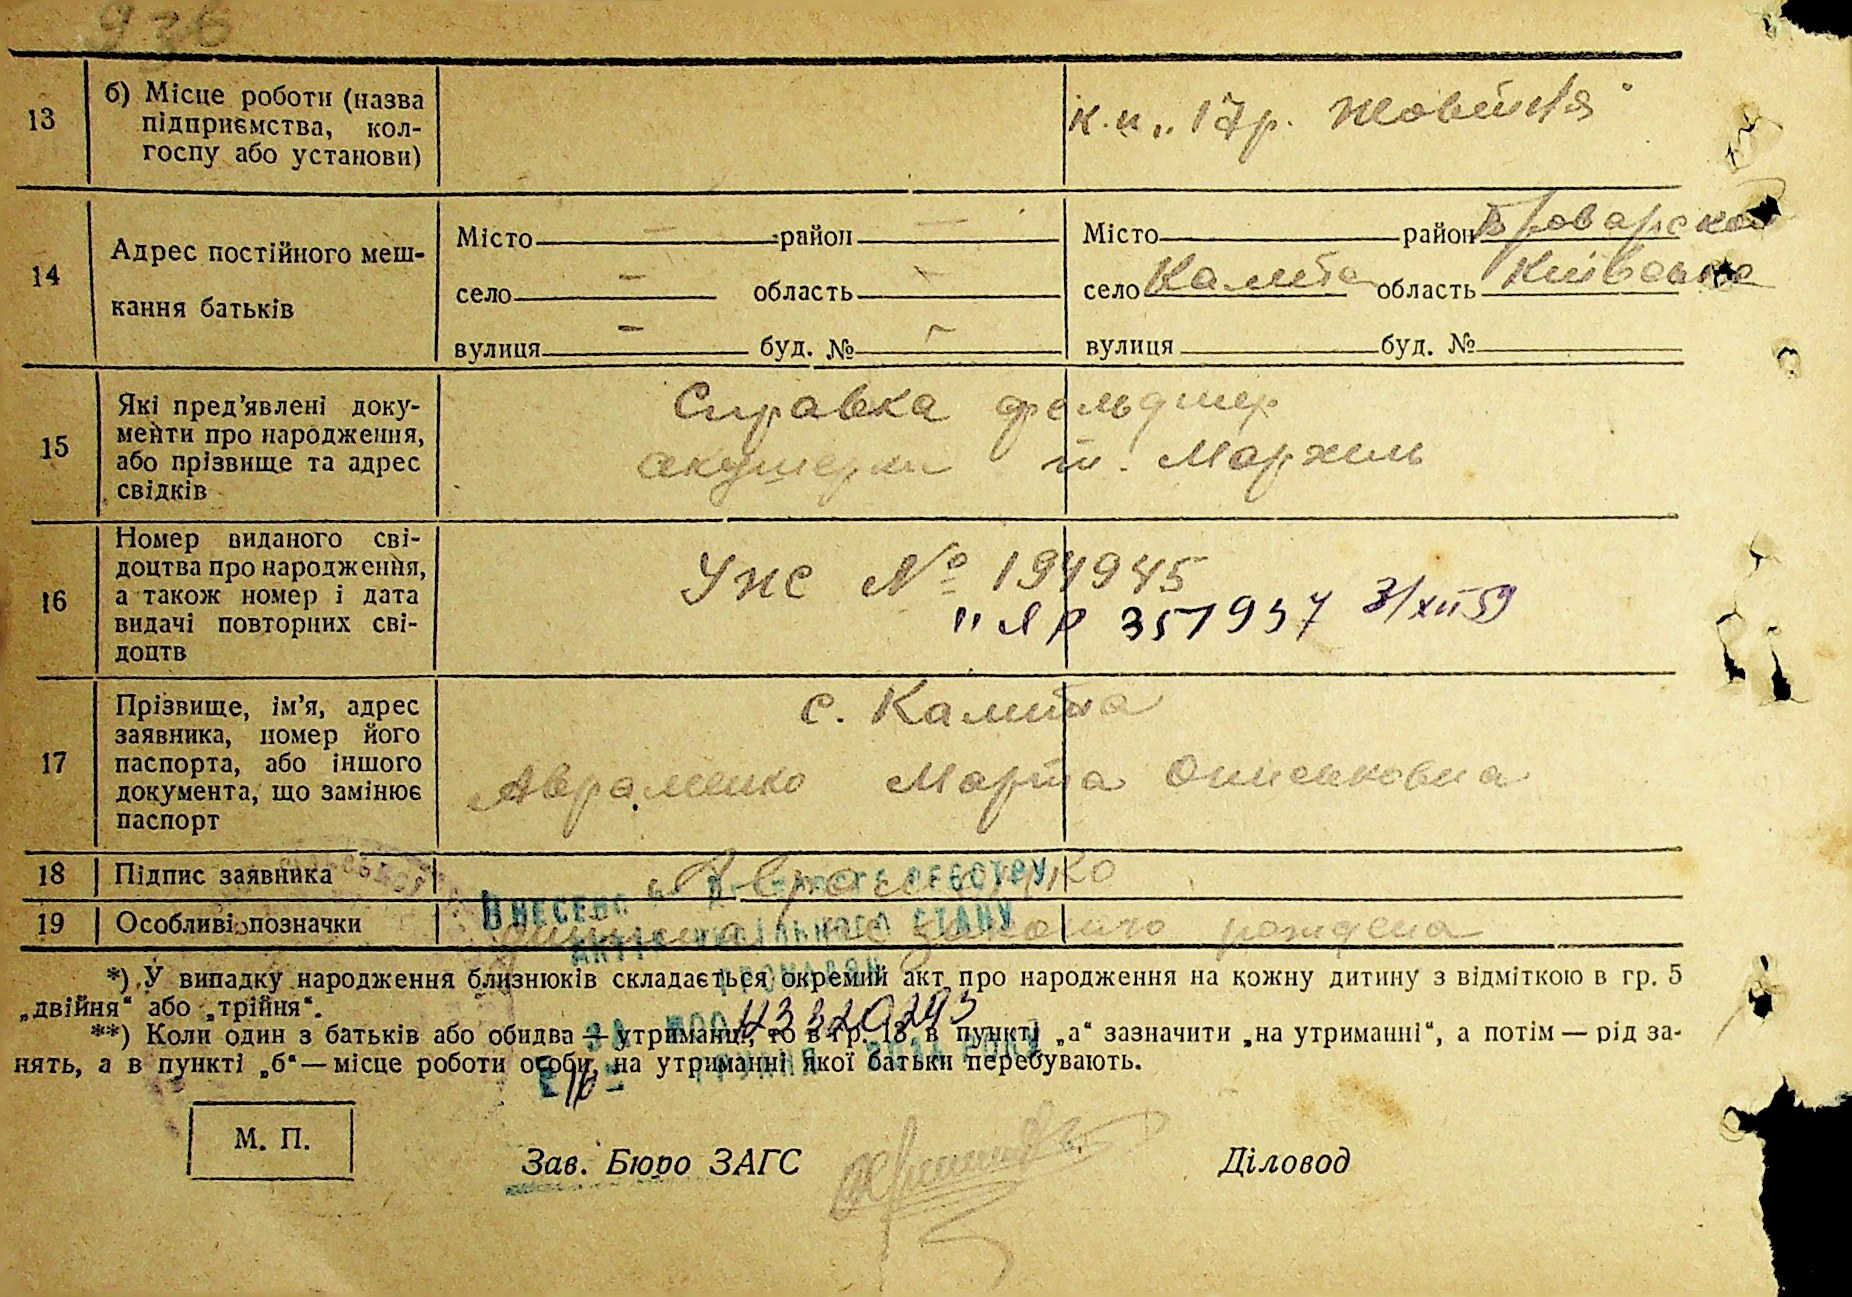 936
13
б) Місце роботи (назва
підприємства, кол-
госпу або установи)
к.п. „17 р. Жовтня"
14
Адрес постійного меш-
кання батьків
Місто — район —
село — область —
вулиця — буд. № —
Місто район Броварской
село Калита область Київська
вулиця буд. №
15
Які пред'явлені доку-
менти про народження,
або прізвище та адрес
свідків
Справка фельдшер
акушерки т. Мархель
16
Номер виданого сві-
доцтва про народження,
а також номер і дата
видачі повторних сві-
доцтв
УЖС № 194945
" ЯР 351937 31/XII 59
17
Прізвище, ім'я, адрес
заявника, номер його
паспорта, або іншого
документа, що замінює
паспорт
с. Калита
Авраменко Марта Ониськовна
18
Підпис заявника
Авраменко
19
Особливі позначки
рождена
ВНЕСЕНО ДО РЕЄСТРУ
АКТІВ ЦИВІЛЬНОГО СТАНУ
ГРОМАДЯН
*) У випадку народження близнюків складається окремий акт про народження на кожну дитину з відміткою в гр. 5
„двійня“ або „трійня“.
**) Коли один з батьків або обидва — утриманці, то в гр. 13, в пункті „а“ зазначити „на утриманні“, а потім — рід за-
нять, а в пункті „б“ — місце роботи особи, на утриманні якої батьки перебувають.
М. П.
Зав. Бюро ЗАГС
Діловод